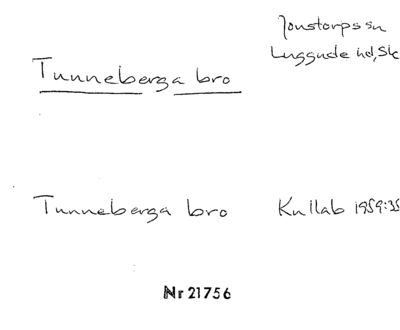 Jonstorps sn
Luggude hd, Sk
Tunneberga bro
Tunneberga bro Kullab 1959:35
Nr 21756